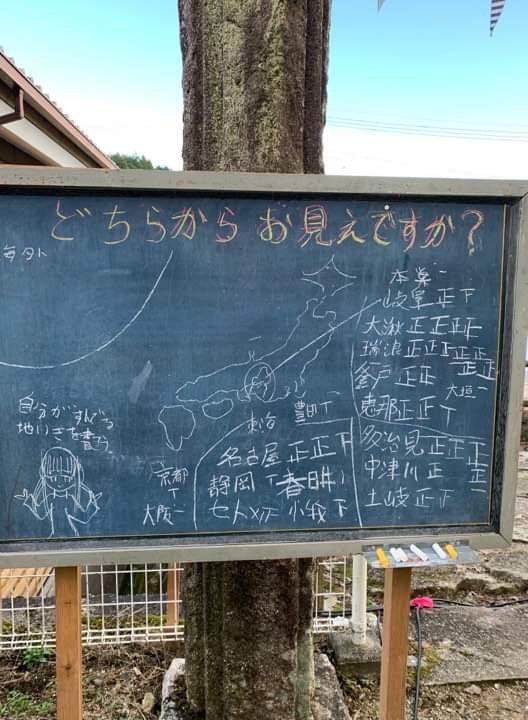 どちらからお見えですか?
海外
本巣一
岐阜 正下
大湫 正正正
瑞浪 正正正正正正正
釜戸 正正
大垣一
恵那 正正丅
多治見 正正正正一
中津川 正
土岐 正下
豊田丅
名古屋 正正下
静岡丅
春日井
セト
小牧下
京都
丅
大阪一
自分がすんでる
地いきを書こう